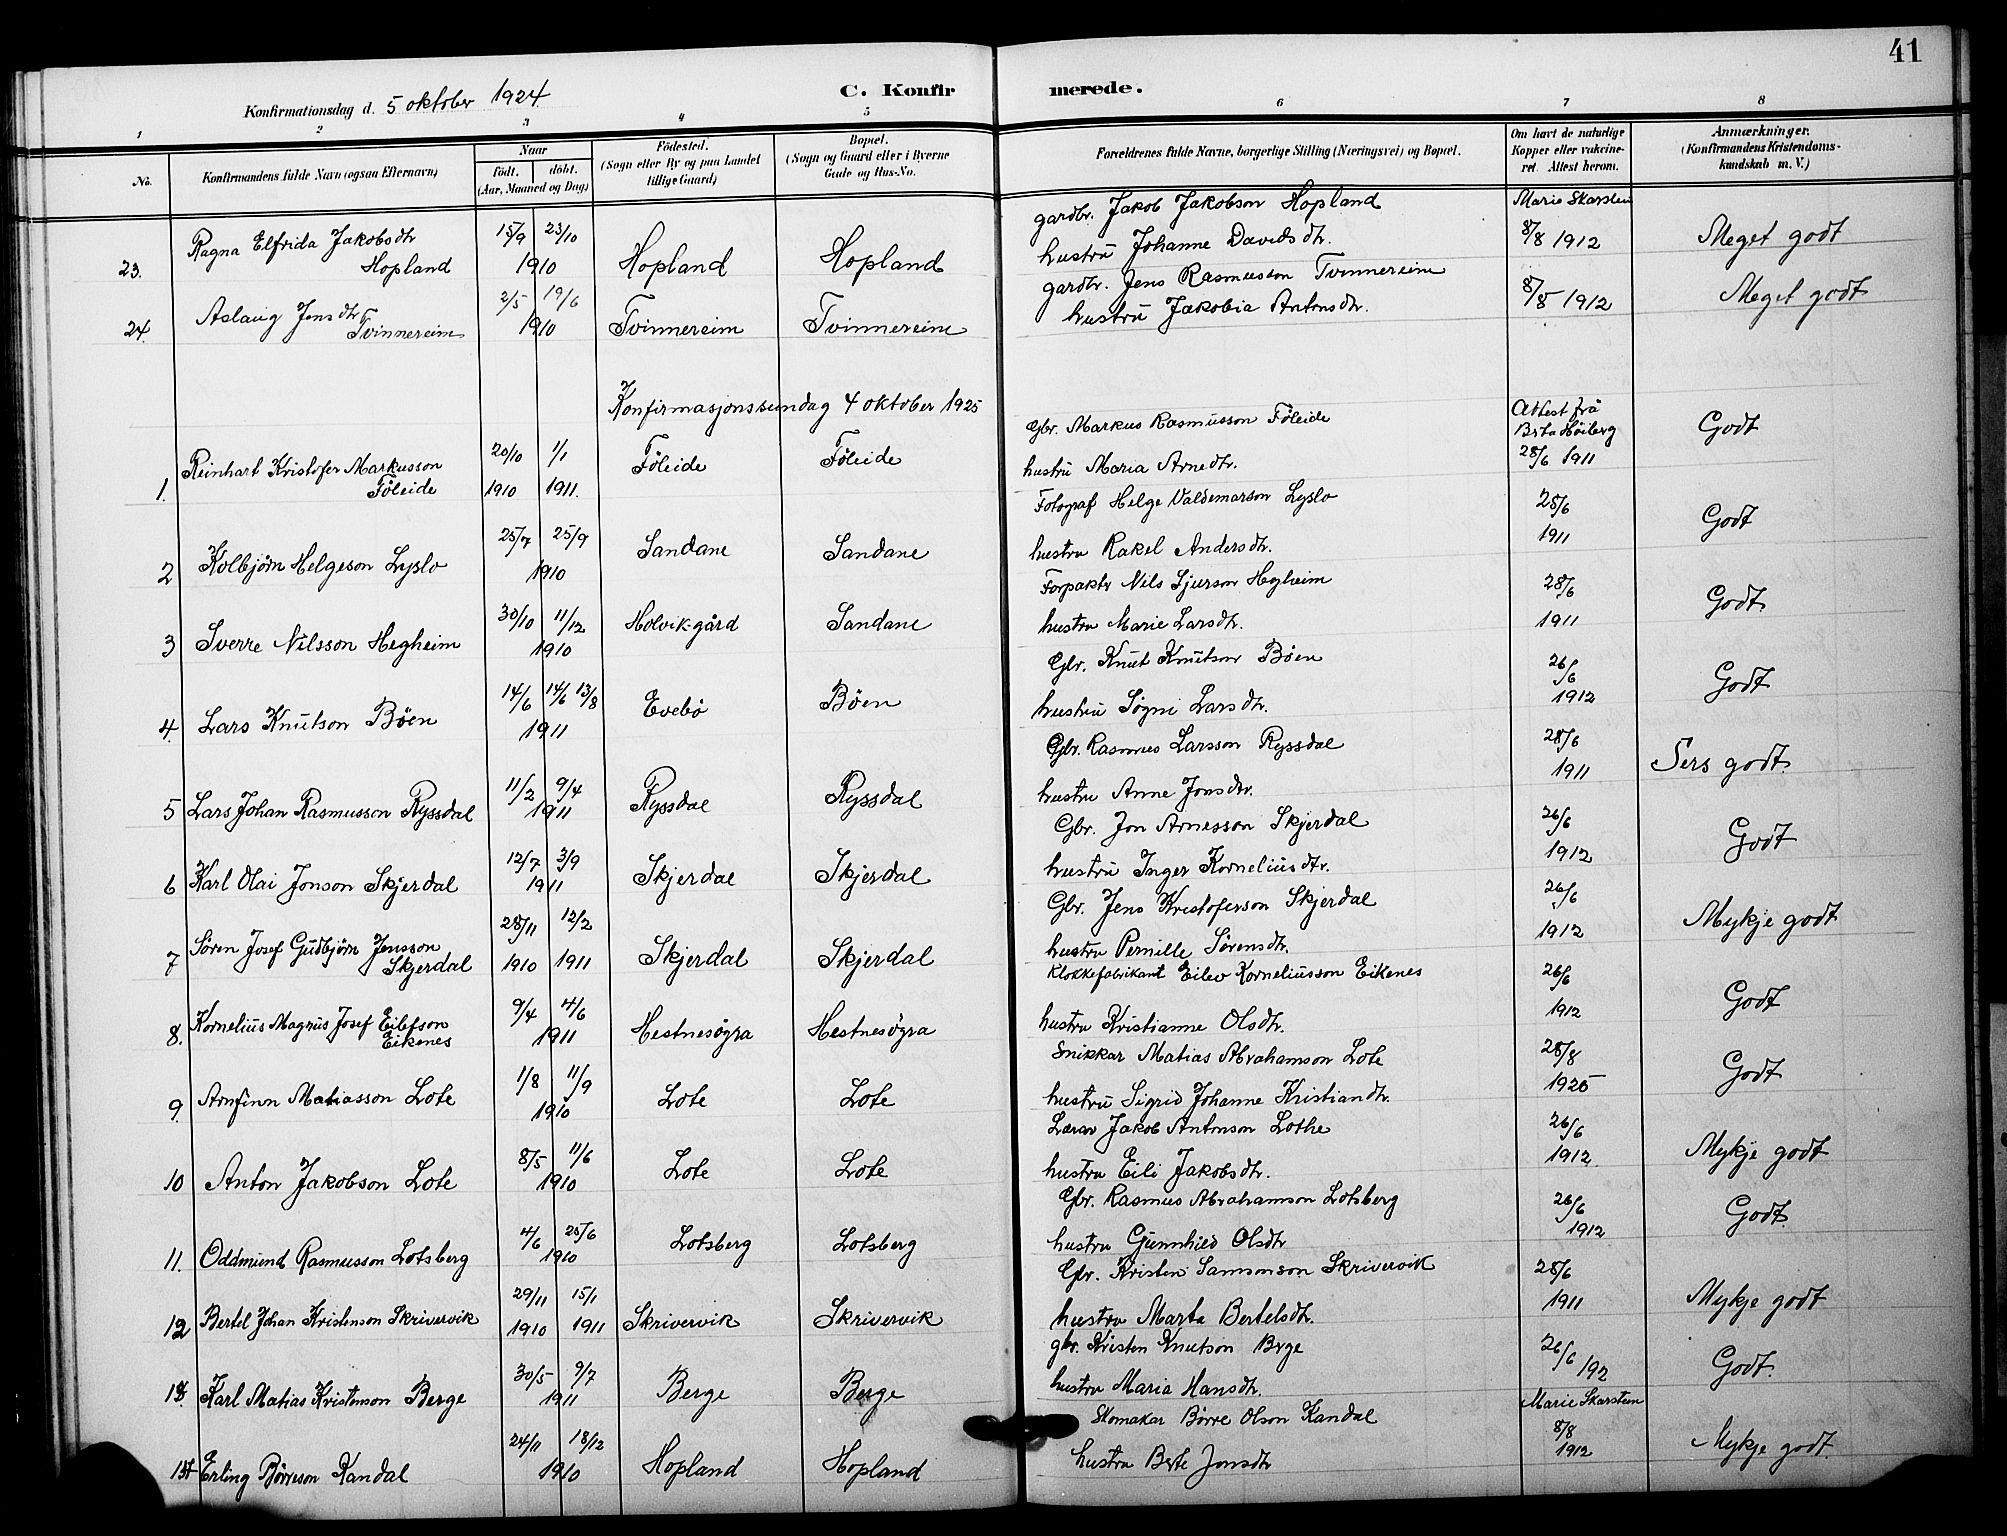 41
Konfirmationsdag d. 5 oktober 1924
C. Konfirmerede.
1 2 3 4 5 6 7 8
No. Konfirmandens fulde Navn (ogsaa Efternavn) Naar født. døbt. (Aar, Maaned og Dag) Fødested. (Sogn eller By og paa Landet tillige Gaard) Bopæl. (Sogn og Gaard eller i Byerne Gade og Hus-No. Forældrenes fulde Navne, borgerlige Stilling (Næringsvei) og Bopæl. Om havt de naturlige Kopper eller vakcineret. Attest herom. Anmærkninger. (Konfirmandens Kristendomskundskab m. V.)
gardbr. Jakob Jakobson Hopland Marie Skarstein
Ragna Elfrida Jakobsdtr 15/9 23/10 hustru Johanne Davidsdtr. 8/8 1912 Meget godt
23. Hopland 1910 Hopland Hopland
gardbr. Jens Rasmusson Tvinnereim
Aslaug Jensdtr 2/5 19/6 hustru Jakobia Antonsdtr. 8/8 1912 Meget godt
24. Tvinnereim 1910 Tvinnereim Tvinnereim
Konfirmasjonssundag 4 oktober 1925
Gbr. Markus Rasmusson Föleide Attest frå Brta Höiberg Godt
Reinhart Kristofer Markusson 20/10 1/1 Föleide Föleide hustru Maria Arnedtr. 28/6 1911
1. Föleide 1910 1911.
Fotograf Helge Valdemarson Lyslo 28/6 Godt
25/7 25/9 Sandane Sandane hustru Rakel Andersdtr. 1911
2 Kolbjörn Helgeson Lyslo 1910
Forpaktr Nils Sjurson Hegheim 28/6 Godt
30/10 11/12 Holvik-gård Sandane hustru Marie Larsdtr. 1911
3 Sverre Nilsson Hegheim 1910
Gbr. Knut Knutson Böen 26/6 Godt
14/6 14/6 13/8 Evebö Böen hustru Søgni Larsdtr. 1912
4. Lars Knutson Böen 1911
Gbr. Rasmus Larsson Ryssdal 28/6 Sers godt.
11/2 9/4 Ryssdal Ryssdal hustru Anne Jonsdtr. 1911
5 Lars Johan Rasmusson Ryssdal 1911
Gbr. Jon Arnesson Skjerdal 26/6 Godt
12/7 3/9 Skjerdal Skjerdal hustru Inger Korneliusdtr. 1912
6 Karl Olai Jonson Skjerdal 1911
Gbr. Jens Kristoferson Skjerdal 26/6 Mykje godt
28/11 12/2 hustru Pernille Sörensdtr. 1912
7 Sören Josef Gudbjörn Jensson Skjerdal 1910 1911 Skjerdal Skjerdal
Klokkefabrikant Eilev Korneliusson Eikenes 26/6 Godt
9/4 4/6 Hestnesögra Hestnesögra hustru Kristianne Olsdtr. 1912
8. Kornelius Magnus Josef Eilefson Eikenes 1911
Snikkar Matias Abrahamson Lote 28/8 Godt
1/8 11/9 Lote Lote hustru Sigrid Johanne Kristiandtr. 1925
9 Arnfinn Matiasson Lote 1910
Lærar Jakob Antonson Lothe 26/6 Mykje godt
8/5 11/6 Lote Lote hustru Eili Jakobsdtr. 1912.
10 Anton Jakobson Lote 1910
Gbr. Rasmus Abrahamson Lotsberg 26/6 Godt
4/6 25/6 Lotsberg Lotsberg hustru Gunnhild Olsdtr 1912
11. Oddmund Rasmusson Lotsberg 1910
Gbr. Kristen Samsonson Skrivervik 28/6 Mykje godt
29/11 15/1 hustru Marta Bertelsdtr. 1911
12 Bertel Johan Kristenson Skrivervik 1910 1911 Skrivervik Skrivervik
gbr. Kristen Knutson Brge 26/6 192 Godt.
30/5 9/7 Berge Berge hustru Maria Hansdtr.
13. Karl Matias Kristenson Berge 1911
Skomakar Börre Olson Kandal Marie Skarstein
24/11 18/12 Hopland Hopland hustru Berte Jonsdtr 8/8 1912 Mykje godt.
14 Erling Börreson Kandal 1910